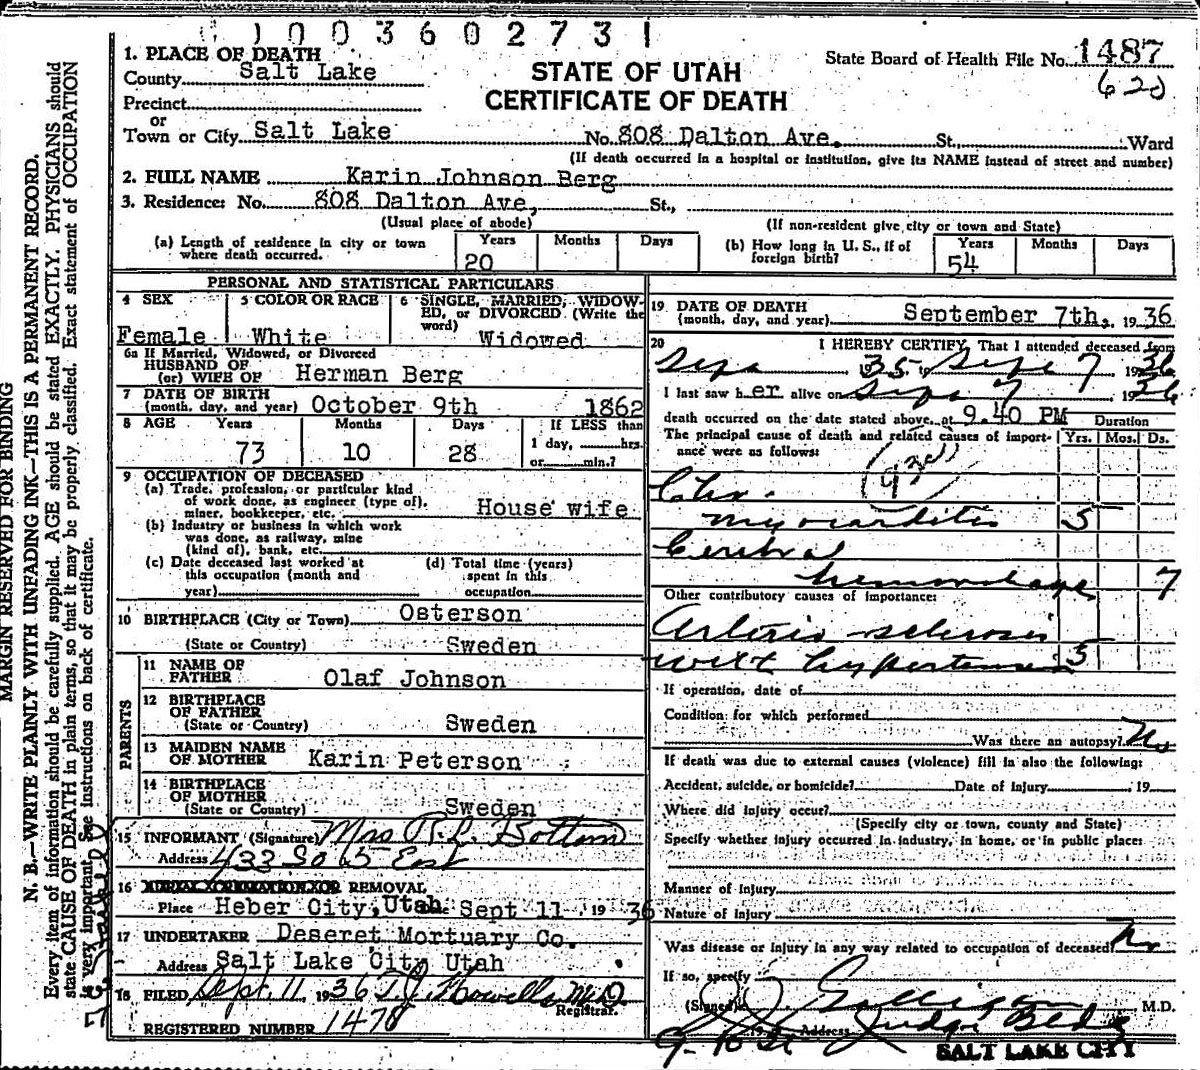 1003602731
1. PLACE OF DEATH
County Salt Lake
STATE OF UTAH
CERTIFICATE OF DEATH
State Board of Health File No. 1487
620
Precinct
or
Town or City Salt Lake No. 808 Dalton Ave. St., Ward
(If death occurred in a hospital or institution, give its NAME instead of street and number)
2. FULL NAME Karin Johnson Berg
3. Residence: No. 808 Dalton Ave, St.,
(Usual place of abode) (If non-resident give city or town and State)
(a) Length of residence in city or town where death occurred. Years 20 Months Days
(b) How long in U. S., if of foreign birth? Years 54 Months Days
PERSONAL AND STATISTICAL PARTICULARS
4 SEX Female
5 COLOR OR RACE White
6 SINGLE, MARRIED, WIDOWED, or DIVORCED (Write the word) Widowed
6a If Married, Widowed, or Divorced
HUSBAND OF
(or) WIFE OF Herman Berg
7 DATE OF BIRTH
(month, day, and year) October 9th 1862
8 AGE Years 73 Months 10 Days 28
If LESS than
1 day, hrs.
or min.?
9 OCCUPATION OF DECEASED
(a) Trade, profession, or particular kind
of work done, as engineer (type of),
miner, bookkeeper, etc. House wife
(b) Industry or business in which work
was done, as railway, mine
(kind of), bank, etc.
(c) Date deceased last worked at
this occupation (month and
year)
(d) Total time (years)
spent in this
occupation
10 BIRTHPLACE (City or Town) Osterson
(State or Country) Sweden
PARENTS
11 NAME OF
FATHER Olaf Johnson
12 BIRTHPLACE
OF FATHER
(State or Country) Sweden
13 MAIDEN NAME
OF MOTHER Karin Peterson
14 BIRTHPLACE
OF MOTHER
(State or Country) Sweden
15 INFORMANT (Signature) Mrs R. L. Bottom
Address 433 So 5 East
16 REMOVAL
Place Heber City, Utah Sept 11 1936
17 UNDERTAKER Deseret Mortuary Co.
Address Salt Lake City Utah
18 FILED Sept. 11 1936 T. J. Howells M.D.
Registrar.
REGISTERED NUMBER 1478
19 DATE OF DEATH
(month, day, and year) September 7th, 1936
20 I HEREBY CERTIFY, That I attended deceased from
Sept 1935 to Sept 7 1936
I last saw her alive on Sept 7 1936
death occurred on the date stated above, at 9.40 PM
The principal cause of death and related causes of importance were as follows:
Duration
Yrs. Mos. Ds.
Chr.
myocarditis 5
Cerebral
hemorrhage 7
Other contributory causes of importance:
Arterio sclerosis
with hypertension 5
If operation, date of
Condition for which performed
Was there an autopsy? No
If death was due to external causes (violence) fill in also the following:
Accident, suicide, or homicide? Date of injury 19
Where did injury occur?
(Specify city or town, county and State)
Specify whether injury occurred in industry, in home, or in public place:
Manner of injury
Nature of injury
Was disease or injury in any way related to occupation of deceased? No
If so, specify
(Signed) M.D.
Address Judge Bldg
SALT LAKE CITY
MARGIN RESERVED FOR BINDING
N. B.—WRITE PLAINLY WITH UNFADING INK—THIS IS A PERMANENT RECORD.
Every item of information should be carefully supplied. AGE should be stated EXACTLY. PHYSICIANS should
state CAUSE OF DEATH in plain terms, so that it may be properly classified. Exact statement of OCCUPATION
is very important. See instructions on back of certificate.